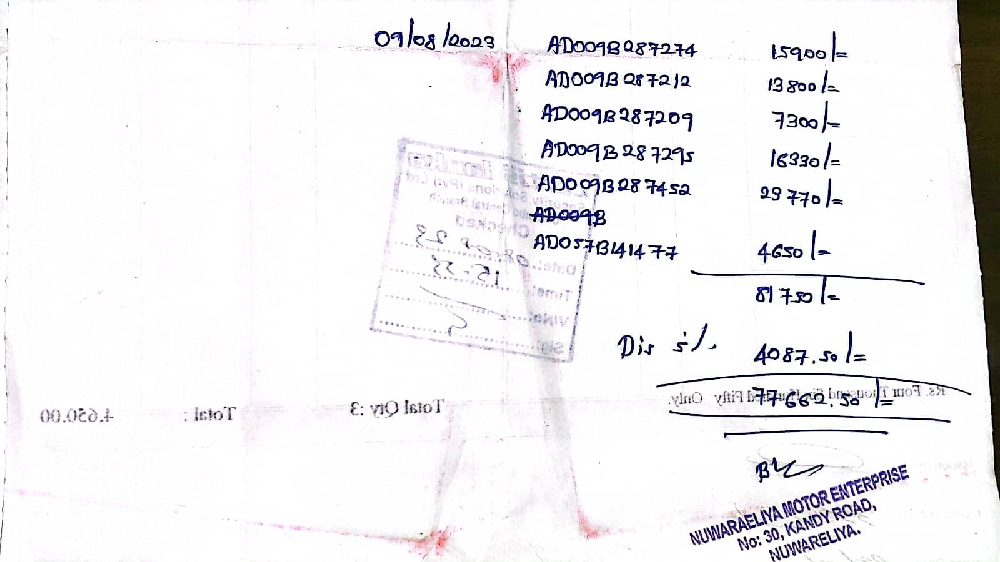 09/08/2023
AD009B287274 15900/=
AD009B287212 13800/=
AD009B287209 7300/=
AD009B287295 16330/=
AD009B287452 23770/=
AD009B
AD057B141477 4650/=
81750/=
Dis 5%. 4087.50/=
77662.50/=
Rs. Four Thousand Fifty Only.
Total Qty : 3 Total : 4,650.00
Checked
Date:
Time: 15.55
NUWARAELIYA MOTOR ENTERPRISE
No: 30, KANDY ROAD,
NUWARELIYA.